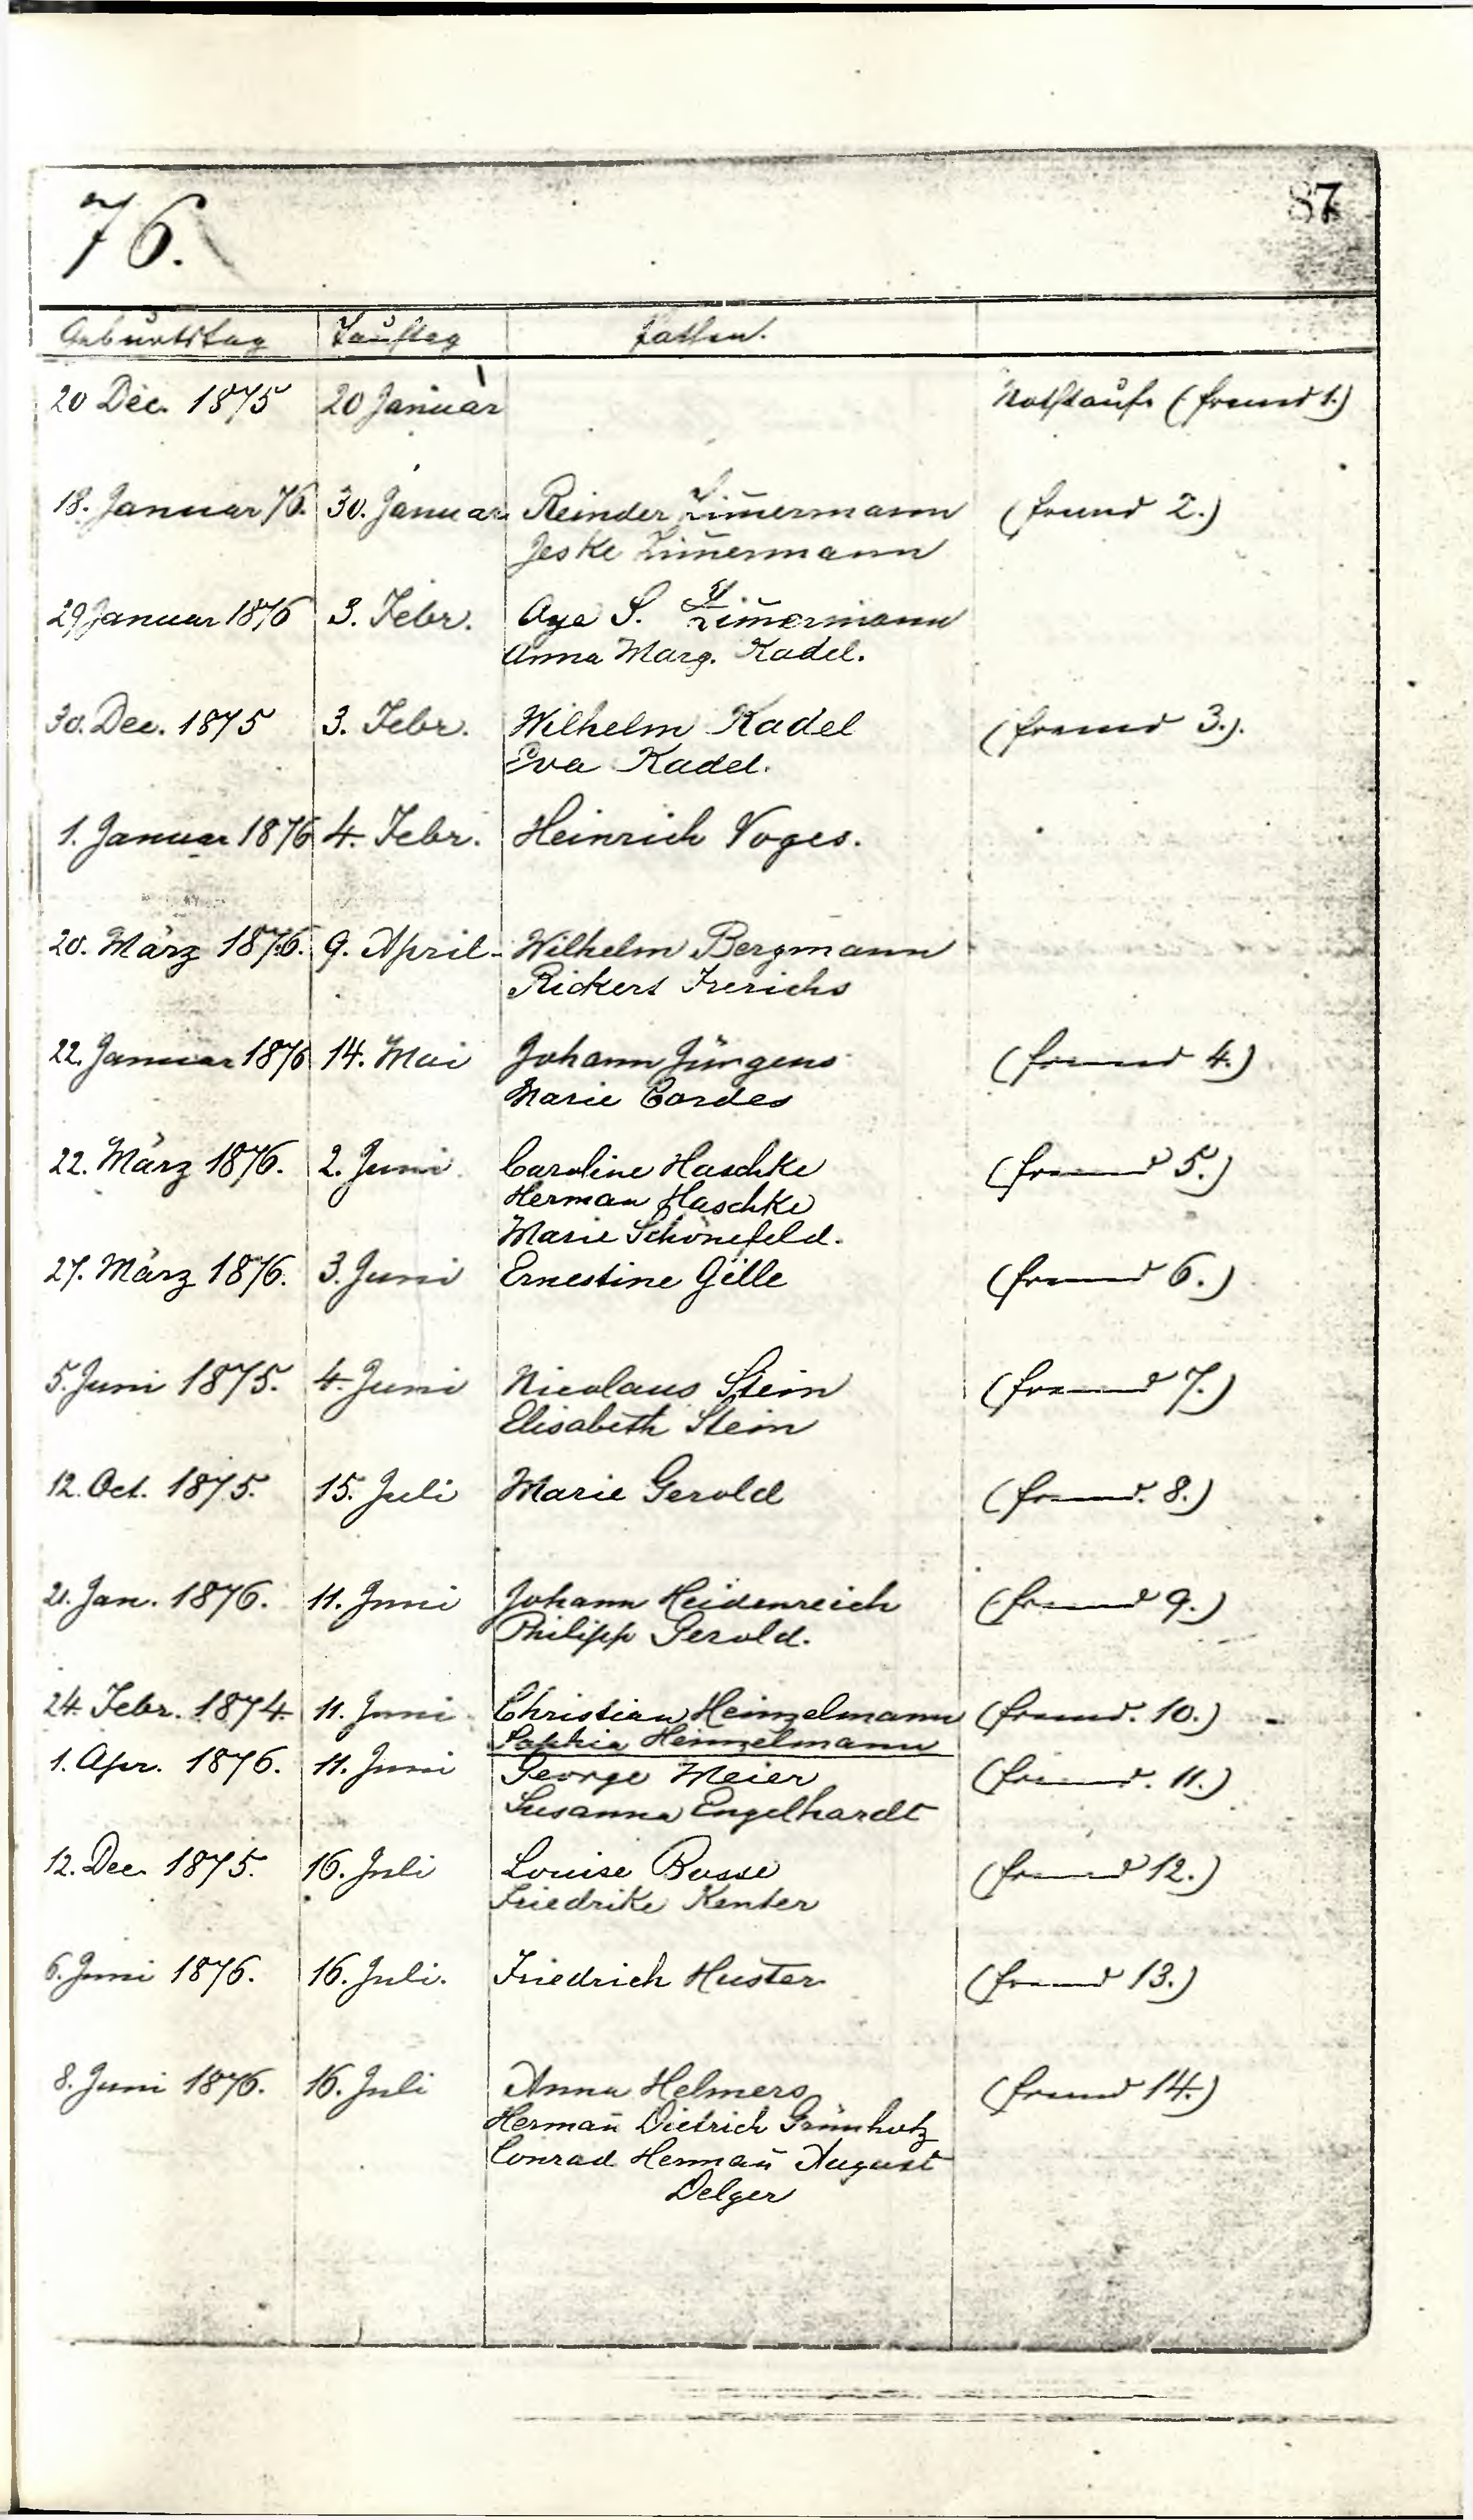 76.
87
Geburtstag Tauftag Pathen.
20 Dec. 1875 20 Januar Nothtaufe (fremd 1.)
18. Januar 76. 30. Januar Reinder Zimermann (fremd 2.)
Jeske Zimermann
29 Januar 1876 3. Febr. Aye S. Zimermann
Anna Marg. Kadel.
30. Dec. 1875 3. Febr. Wilhelm Kadel (fremd 3.).
Eva Kadel.
1. Januar 1876 4. Febr. Heinrich Voges.
20. März 1876. 9. April. Wilhelm Bergmann
Rickert Frerichs
22. Januar 1876 14. Mai Johann Jürgens (fremd 4.)
Marie Cordes
22. März 1876. 2. Juni Caroline Haschke (fremd 5.)
Herman Haschke
Marie Schönefeld.
27. März 1876. 3. Juni Ernestine Gille (fremd 6.)
5. Juni 1875. 4. Juni Nicolaus Stein (fremd 7.)
Elisabeth Stein
12. Oct. 1875. 15. Juli Marie Gerold (fremd. 8.)
21. Jan. 1876. 11. Juni Johann Heidenreich (fremd 9.)
Philipp Gerold.
24. Febr. 1874. 11. Juni Christian Heinzelmann (fremd. 10.)
Sophia Heinzelmann
1. Apr. 1876. 11. Juni George Meier (fremd. 11.)
Susanna Engelhardt
12. Dec. 1875. 16. Juli Louise Busse (fremd 12.)
Friedrike Kenter
6. Juni 1876. 16. Juli. Friedrich Huster (fremd 13.)
8. Juni 1876. 16. Juli Anna Helmers (fremd 14.)
Hermañ Dietrich Grünholz
Conrad Hermañ August
Delger